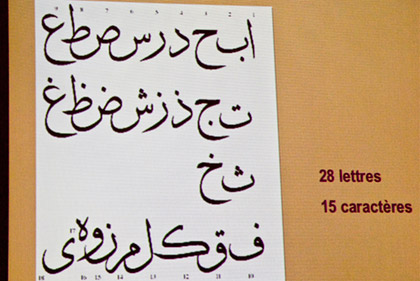 ا ب ح د ر س ص ط ع
ت ج ذ ز ش ض ظ غ
ث خ
ف ق ك ل م ن و ه ى
28 lettres
15 caractères